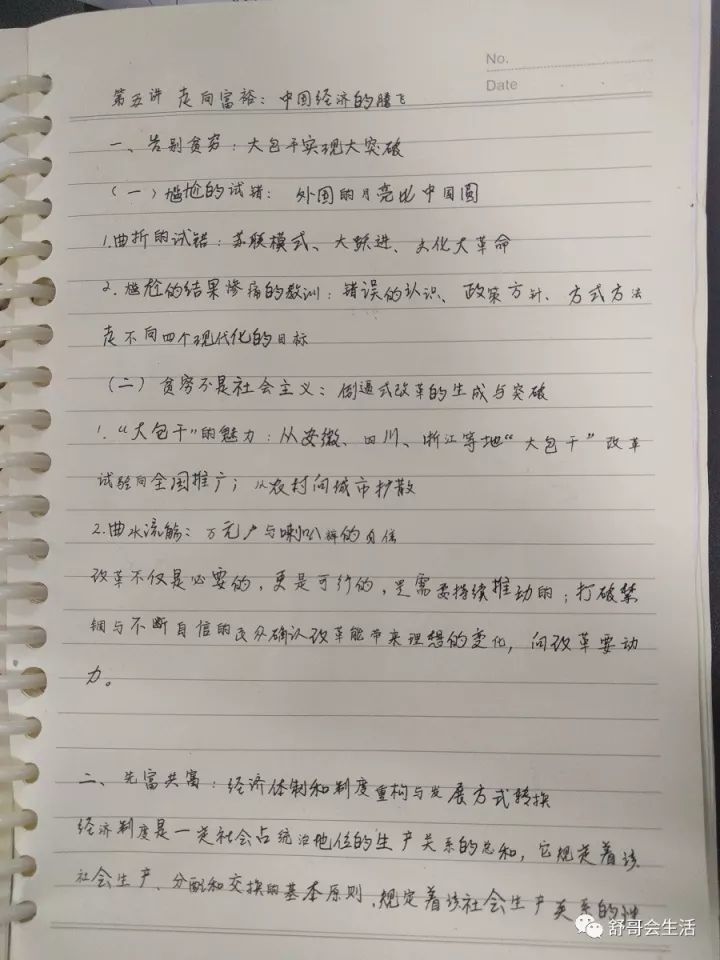 No.
Date
第五讲 走向富裕：中国经济的腾飞
一、告别贫穷：大包干实现大突破
（一）尴尬的试错： 外国的月亮比中国圆
1.曲折的试错：苏联模式、大跃进、文化大革命
2.尴尬的结果惨痛的教训：错误的认识、政策方针、方式方法
走不向四个现代化的目标
（二）贫穷不是社会主义：倒逼式改革的生成与突破
1."大包干"的魅力：从安徽、四川、浙江等地"大包干"改革
试验向全国推广；从农村向城市扩散
2.曲水流觞：万元户与喇叭裤的自信
改革不仅是必要的，更是可行的，是需要持续推动的；打破禁
锢与不断自信的民众确认改革能带来理想的变化，向改革要动
力。
二、先富共富：经济体制和制度重构与发展方式转换
经济制度是一定社会占统治地位的生产关系的总和，它规定着该
社会生产、分配和交换的基本原则，规定着该社会生产关系的性
舒哥会生活